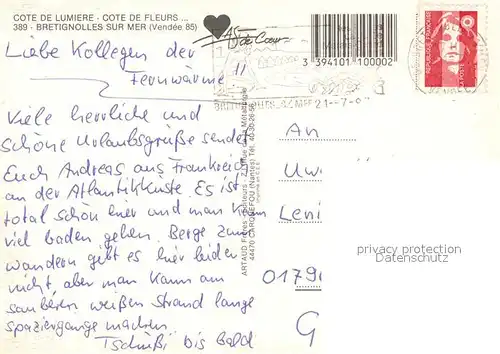 COTE DE LUMIERE - COTE DE FLEURS ...
389 - BRETIGNOLLES SUR MER (Vendée 85)
AS de Cœur
3 394101 100002
REPUBLIQUE FRANÇAISE
BRETIGNOLLES S/MER 21-7-
Liebe Kollegen der
Fernwärme!!
Viele herrliche und
schöne Urlaubsgrüße sendet
Euch Andreas aus Frankreich
an der Atlantikküste. Es ist
total schön hier und man kann
viel baden gehen. Berge zum
wandern gibt es hier leider
nicht, aber man kann am
sauberen weißen Strand lange
spaziergänge machen.
Tschüß bis bald
ARTAUD Frères Editeurs - Z.I. Rue de la Métallurgie
44470 CARQUEFOU (Nantes) Tél. 40.30.26.56
An
Uw
Leni
0179
G
privacy protection
Datenschutz